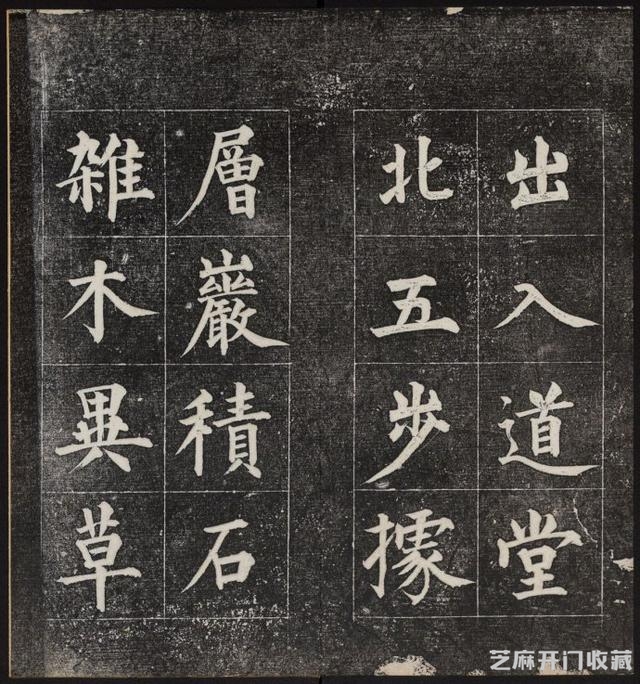 出入道堂
北五步據
層巖積石
雜木異草
芝麻开门收藏